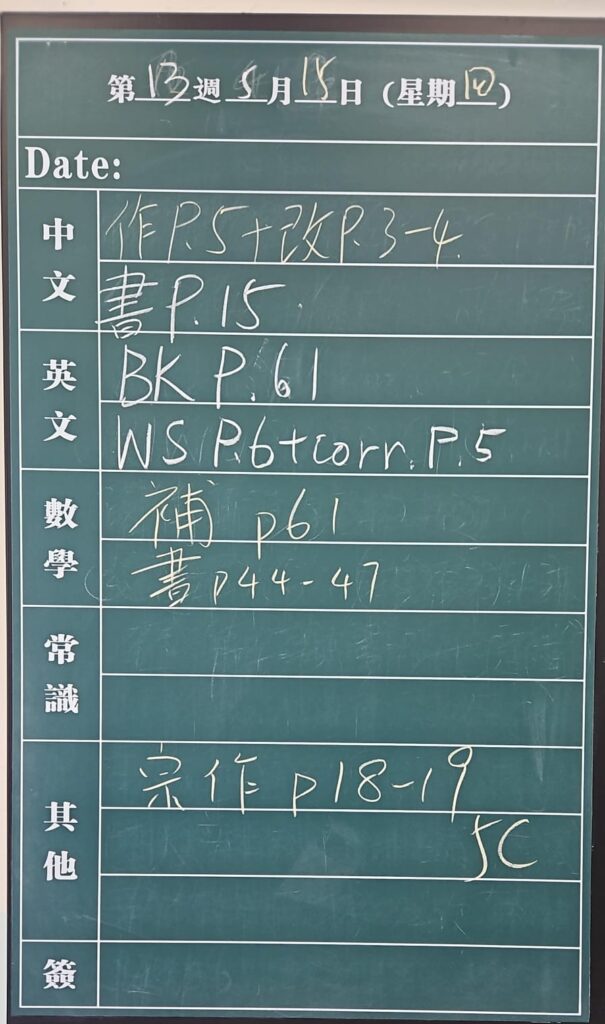 第13週 5月15日 (星期四)
Date:
中文
作P.5+改P.3-4
書P.15
英文
BK P.61
WS P.6+corr. P.5
數學
補 p61
書p44-47
常識
其他
宗作 p18-19
5C
簽